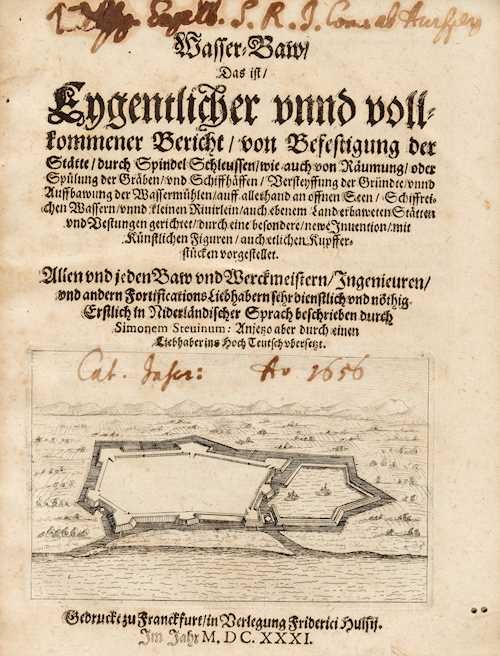 Engelb. S. R. I. Com. ab Auersperg
Wasser-Baw/
Das ist/
Eygentlicher vnnd voll-
kommener Bericht/von Befestigung der
Stätte/durch Spindel Schleussen/wie auch von Räumung/oder
Spülung der Gräben/vnd Schiffhäffen/Versteyffung der Gründte/vnnd
Auffbawung der Wassermühlen/auff allerhand an offnen Seen/Schiffrei-
chen Wassern/vnnd kleinen Rivirlein/auch ebenem Land erbaweten Stätten
vnd Vestungen gerichtet/durch eine besondere/newe Invention/mit
Künstlichen Figuren/auch etlichen Kupffer-
stücken vorgestellet.
Allen vnd jeden Baw vnd Werckmeistern/Ingenieuren/
vnd andern Fortifications Liebhabern sehr dienstlich vnd nöthig.
Erstlich in Niderländischer Sprach beschrieben durch
Simonem Stevinum: Anjetzo aber durch einen
Liebhaber ins Hoch Teutsch vbersetzt.
Cat. Inscr: Ao 1656
Gedruckt zu Franckfurt/in Verlegung Friderici Hulsij.
Im Jahr M. DC. XXXI.